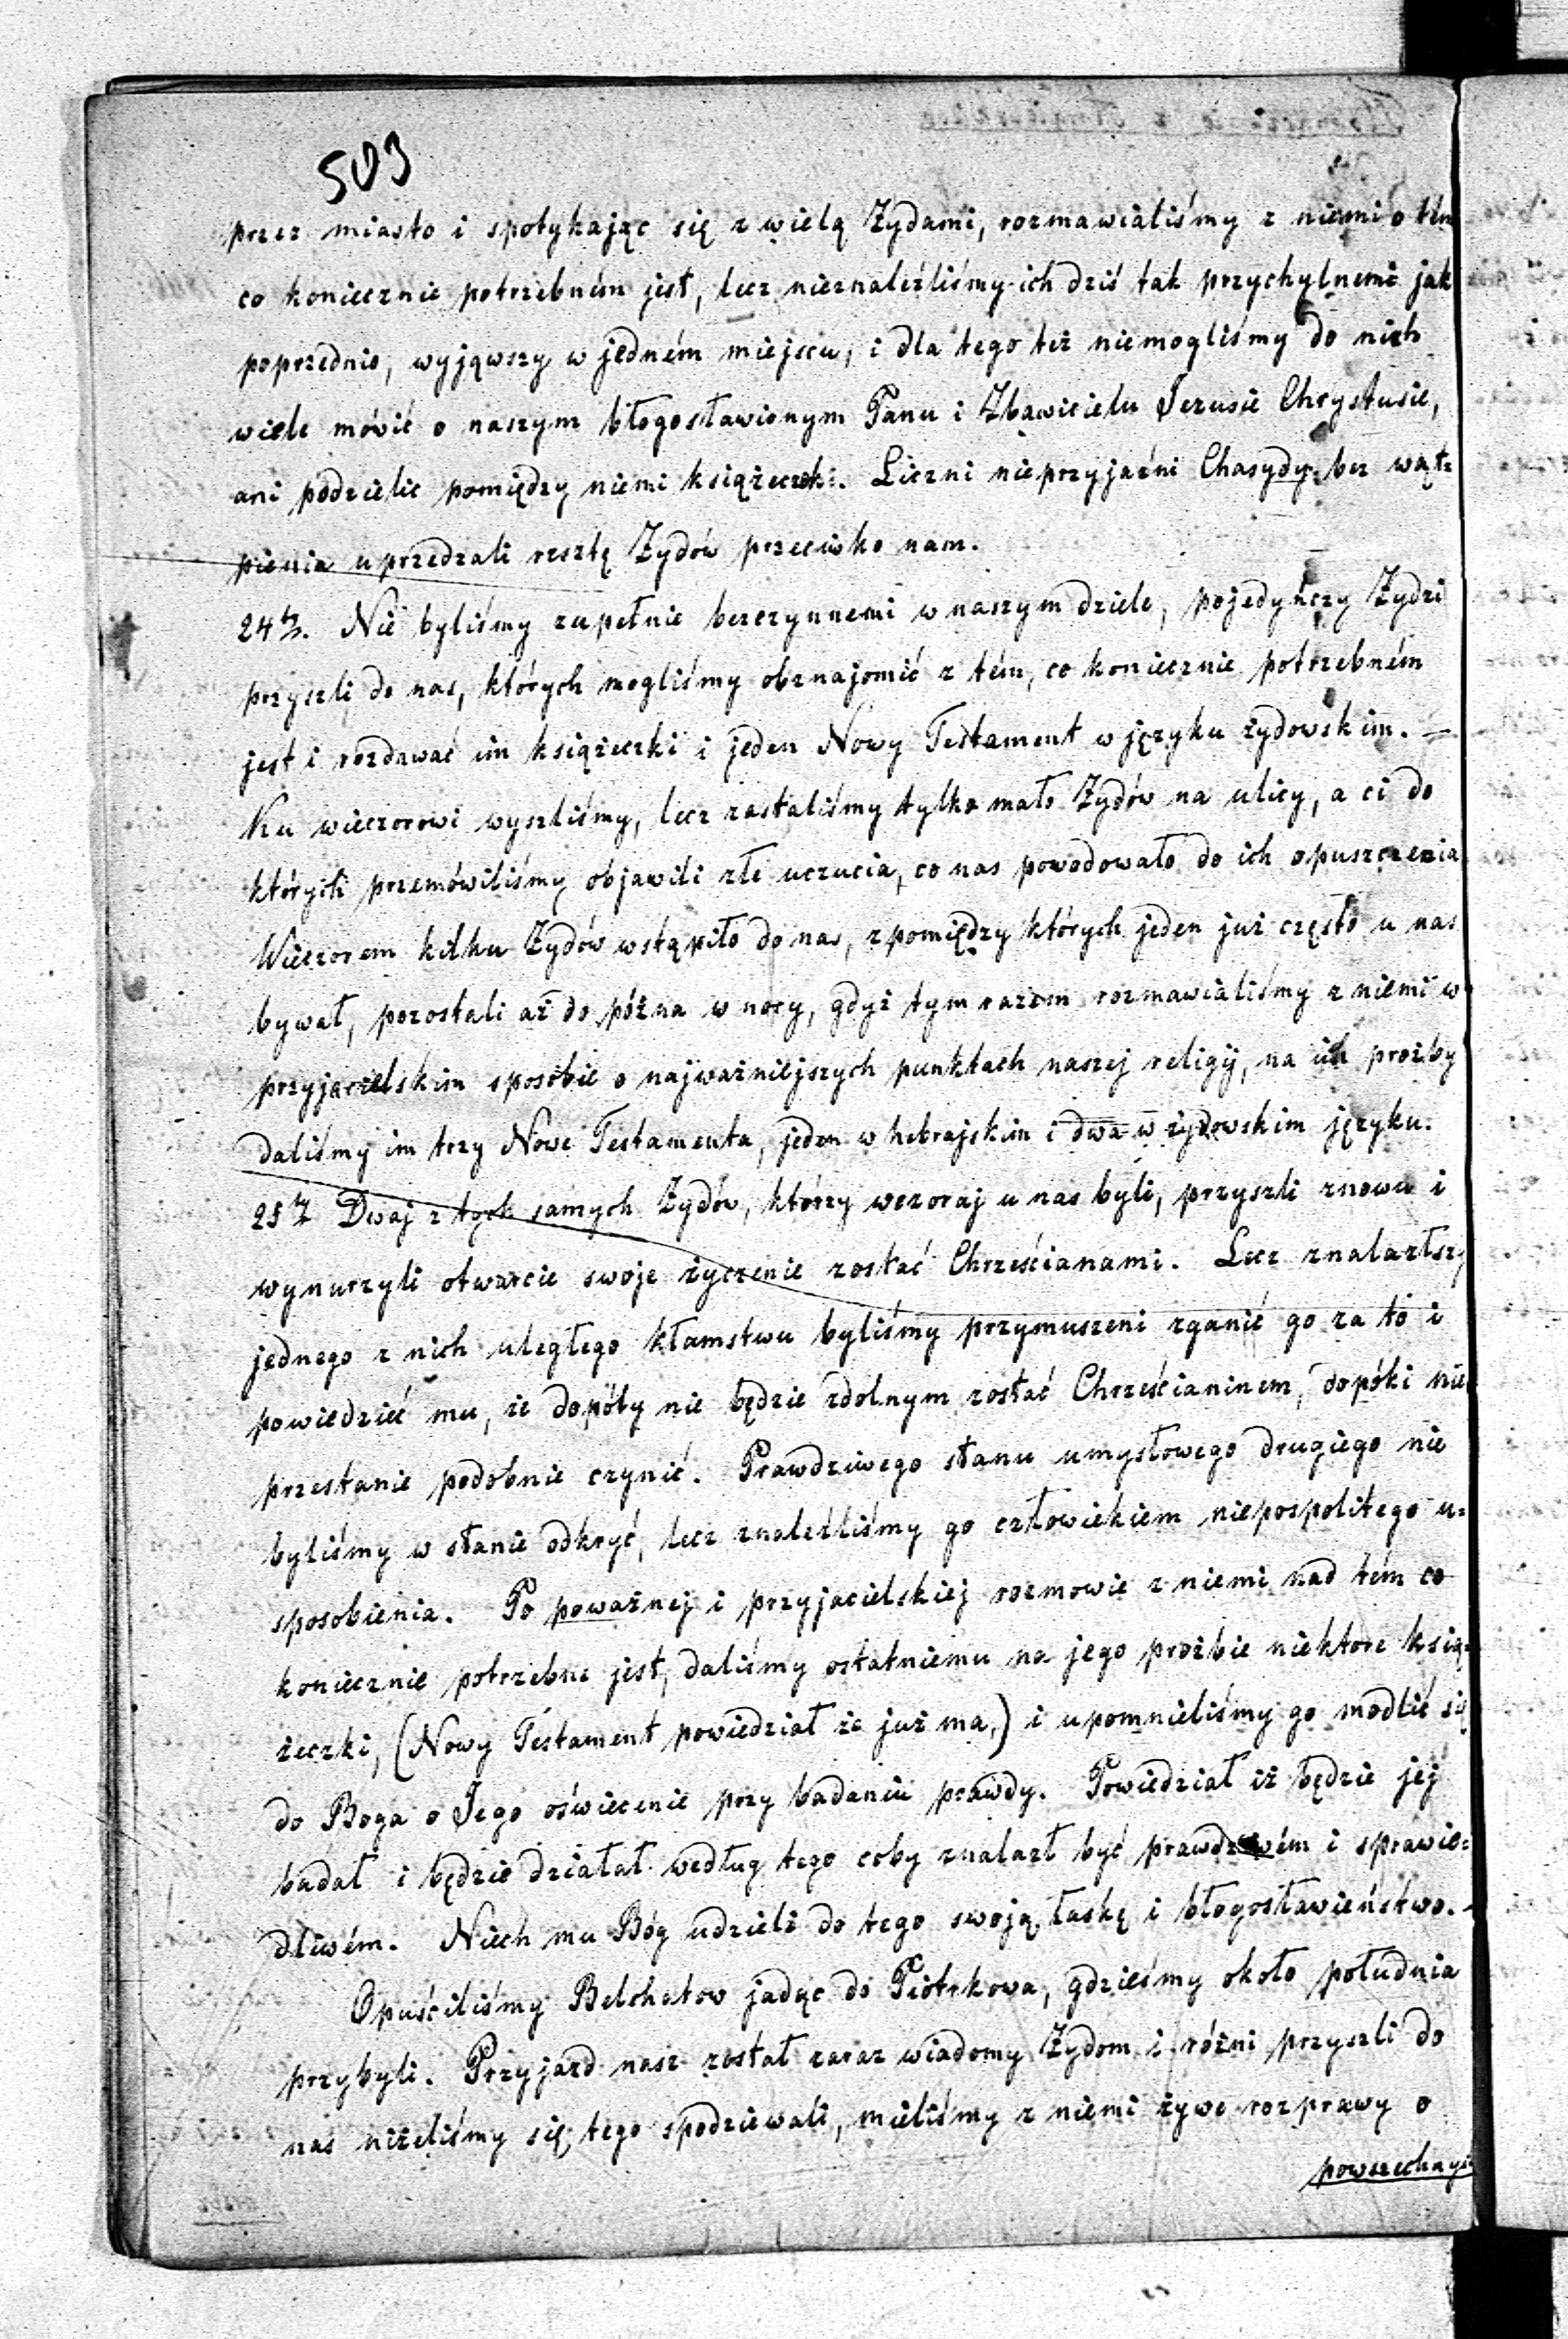 503
przez miasto i spotykając się z wielą Żydami, rozmawialiśmy z niemi o tém
co koniecznie potrzebném jest, lecz nieznaleźliśmy ich dziś tak przychylnemi jak
poprzednio, wyjąwszy w jedném miejscu, i dla tego też niemogliśmy do nich
wiele mówić o naszym błogosławionym Panu i Zbawicielu Jezusie Chrystusie,
ani podzielić pomiędzy niemi książeczki. Liczni nieprzyjaźni Chasydy bez wąt-
pienia uprzedzali resztę Żydów przeciwko nam.
24tḡ. Nie byliśmy zupełnie bezczynnemi w naszym dziele, pojedyńczy Żydzi
przyszli do nas, których mogliśmy obznajomić z tém, co koniecznie potrzebném
jest i rozdawać im książeczki i jeden Nowy Testament w języku żydowskim. —
Ku wieczorowi wyszliśmy, lecz zastaliśmy tylko mało Żydów na ulicy, a ci do
których przemówiliśmy objawili złe uczucia, co nas powodowało do ich opuszczenia
Wieczorem kilku Żydów wstąpiło do nas, z pomiędzy których jeden już często u nas
bywał, pozostali aż do późna w nocy, gdyż tym razem rozmawialiśmy z niemi w
przyjacielskim sposobie o najważniejszych punktach naszej religij, na ich prośby
daliśmy im trzy Nowe Testamenta, jeden w hebrajskim i dwa w żydowskim języku.
25 Dwaj z tych samych Żydów, którzy wczoraj u nas byli, przyszli znowu i
wynurzyli otwarcie swoje życzenie zostać Chrześcianami. Lecz znalazłszy
jednego z nich uległego kłamstwu byliśmy przymuszeni zganić go za to i
powiedzieć mu, że dopóty nie będzie zdolnym zostać Chrześcianinem, dopóki nie
przestanie podobnie czynić. Prawdziwego stanu umysłowego drugiego nie
byliśmy w stanie odkryć, lecz znaleźliśmy go człowiekiem niepospolitego u-
sposobienia. Po poważnej i przyjacielskiej rozmowie z niemi nad tém co
koniecznie potrzebne jest, daliśmy ostatniemu na jego prośbie niektore ksią-
żeczki, (Nowy Testament powiedział że już ma,) i upomnieliśmy go modlić się
do Boga o Jego oświecenie przy badaniu prawdy. Powiedział iż będzie jej
badał i będzie działał według tego coby znalazł być prawdziwém i sprawie-
dliwém. Niech mu Bóg udzieli do tego swoją łaskę i błogosławieństwo. -
Opuściliśmy Belchatow jadąc do Piotrkowa, gdzieśmy około południa
przybyli. Przyjazd nasz został zaraz wiadomy Żydom i różni przyszli do
nas niżeliśmy się tego spodziewali, mieliśmy z niemi żywe rozprawy o
powszechnych